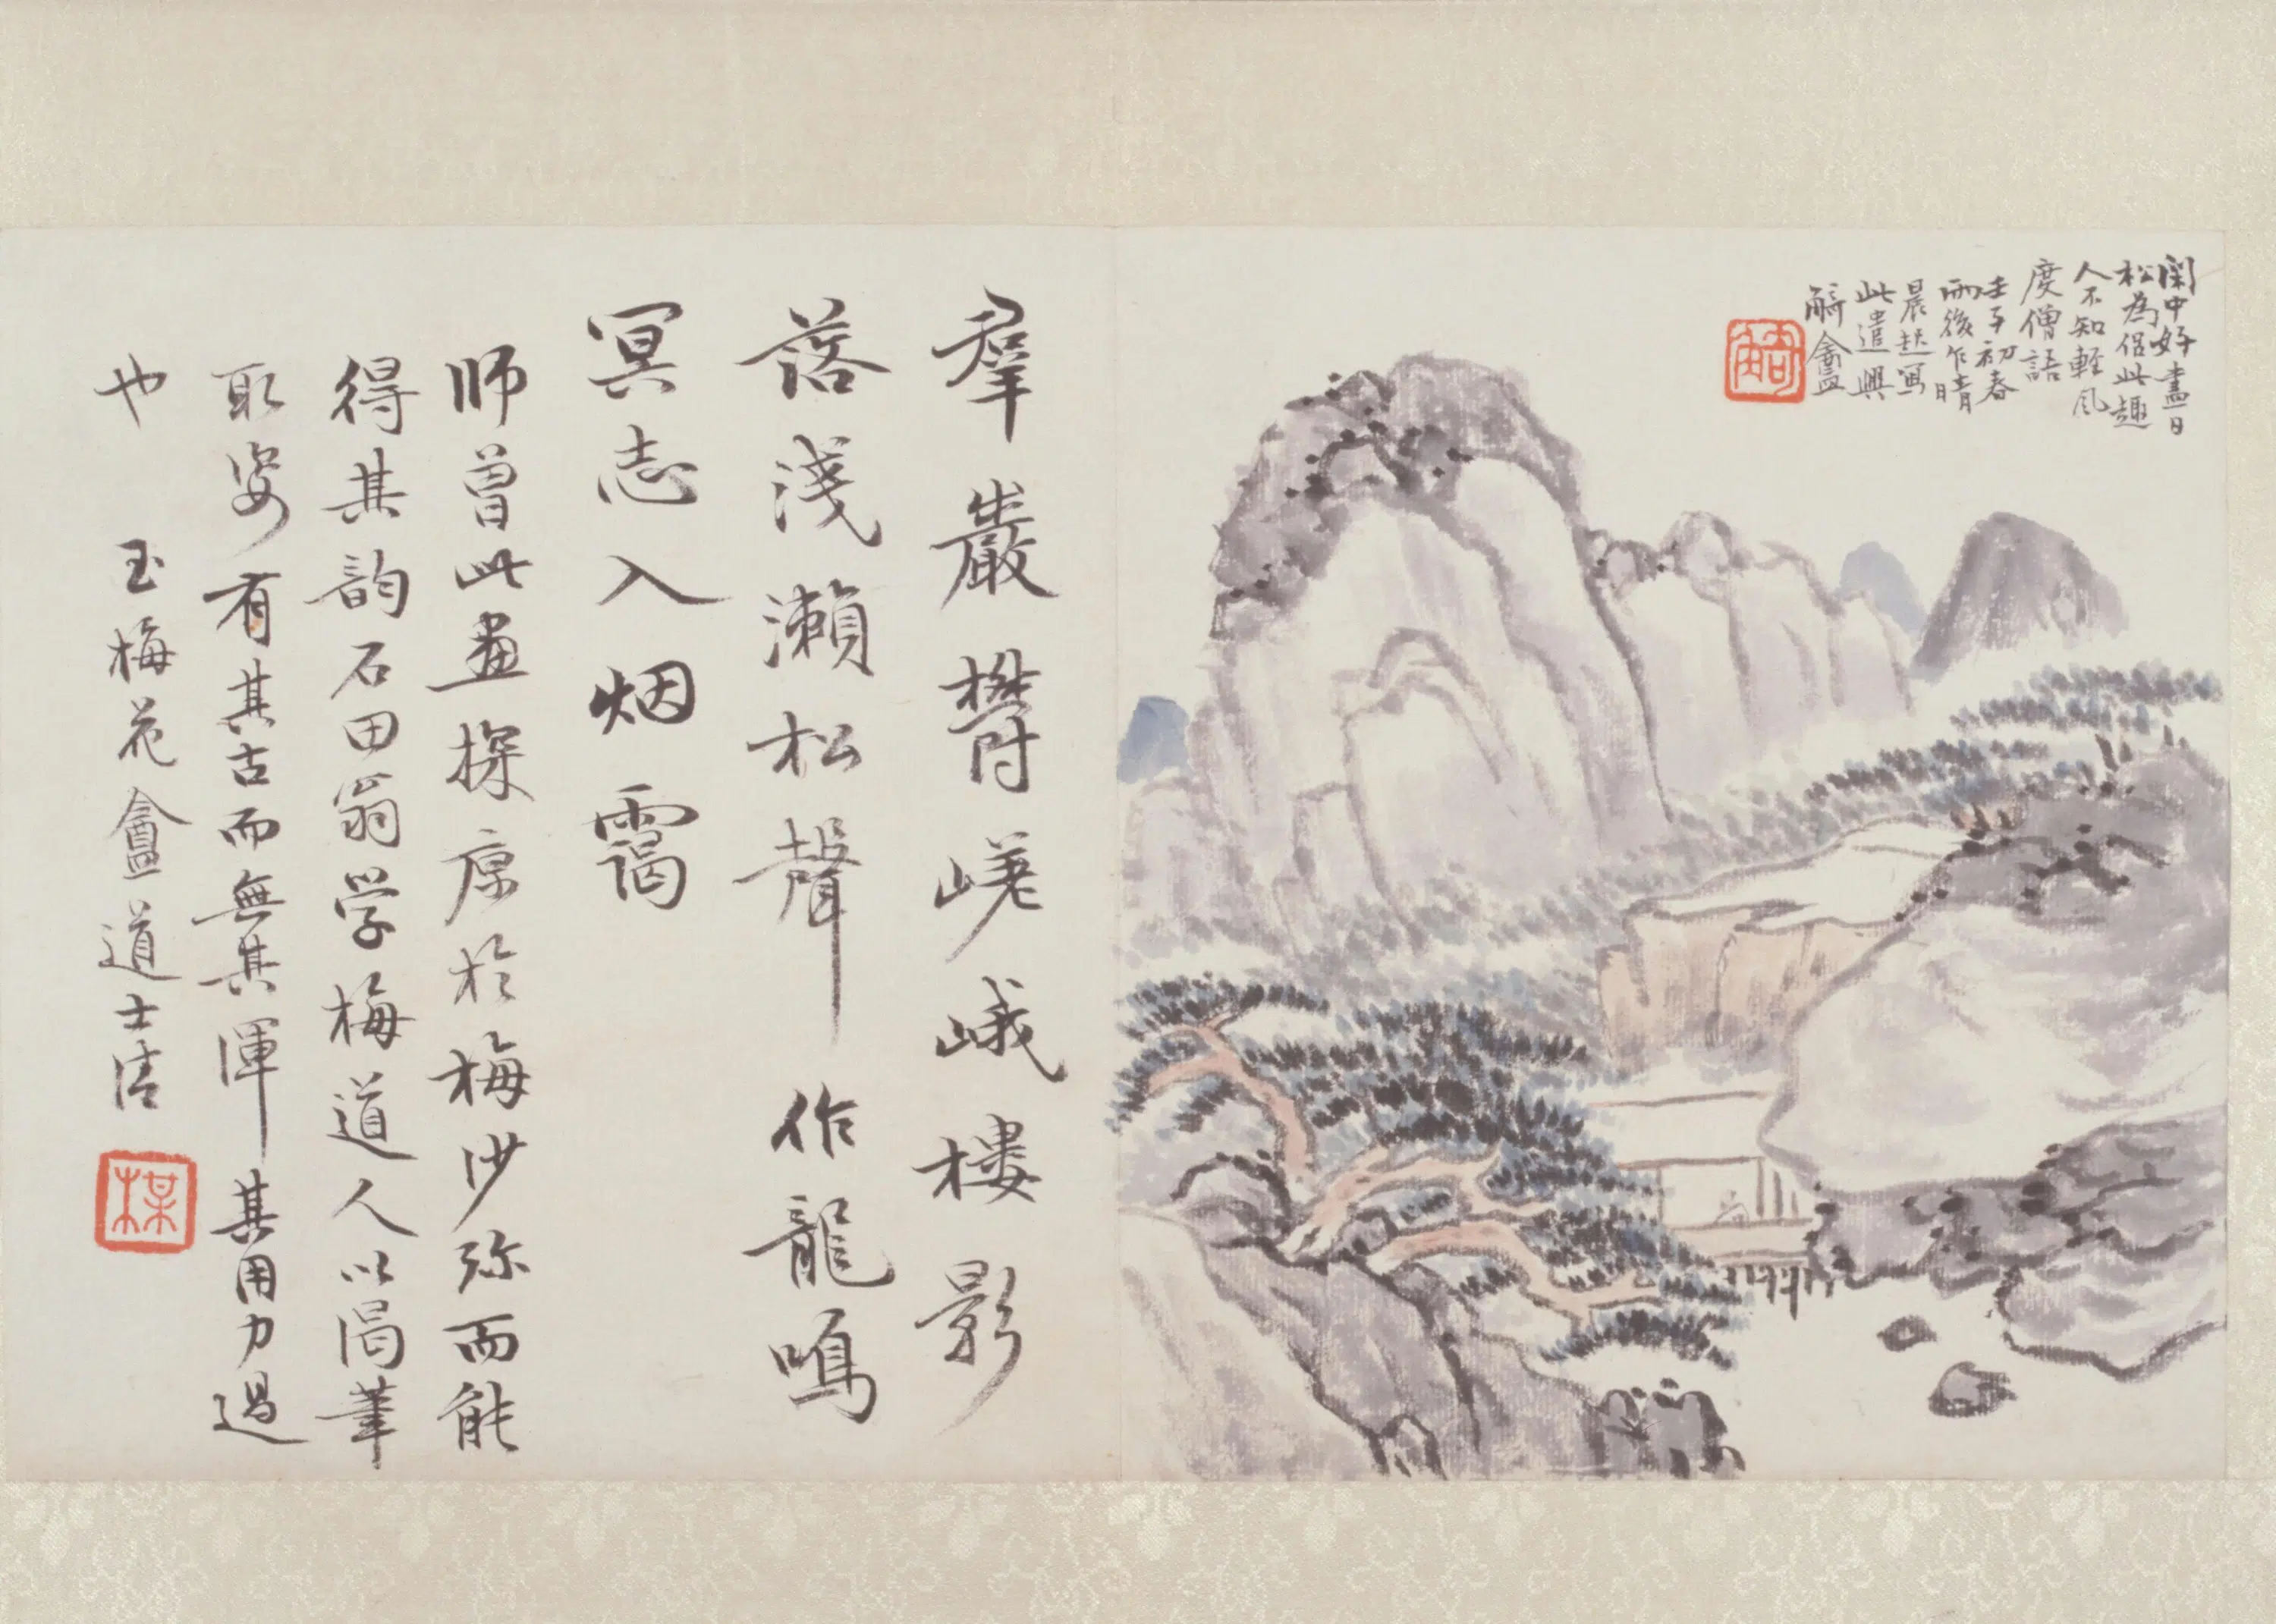 閑中好盡日
松為侶此趣
人不知輕風
度僧語
壬子初春
雨後乍晴
晨起寫
此遣興
觭盦
羣巖欝嵯峨樓影
落淺瀨松聲作龍鳴
冥志入烟靄
师曾此畫探原於梅沙弥而能
得其韵石田翁学梅道人以渴筆
取姿有其古而無其渾其用力過
也 玉梅花盦道士清